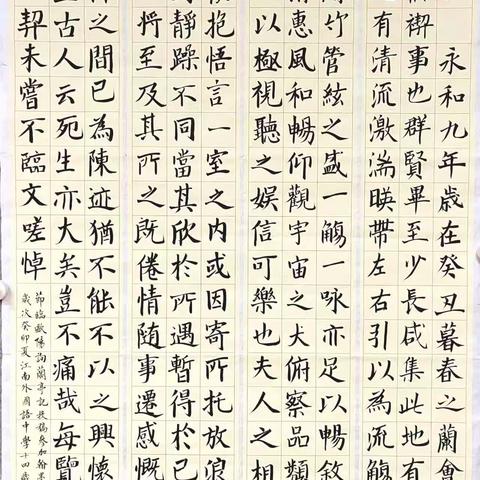 永和九年歲在癸丑暮春之蘭會
禊事也群賢畢至少長咸集此地有
有清流激湍暎帶左右引以為流觴
竹管絃之盛一觴一詠亦足以暢敘
惠風和暢仰觀宇宙之大俯察品類
以極視聽之娛信可樂也夫人之相
抱悟言一室之内或因寄所托放浪
靜躁不同當其欣於所遇暫得於己
將至及其所之既倦情随事遷感慨
之間已為陳迹猶不能不以之興懷
古人云死生亦大矣豈不痛哉每覽
契未嘗不臨文嗟悼
節臨歐陽詢蘭亭記投稿參加翰墨
歲次癸卯夏江南外國語中學十四歲